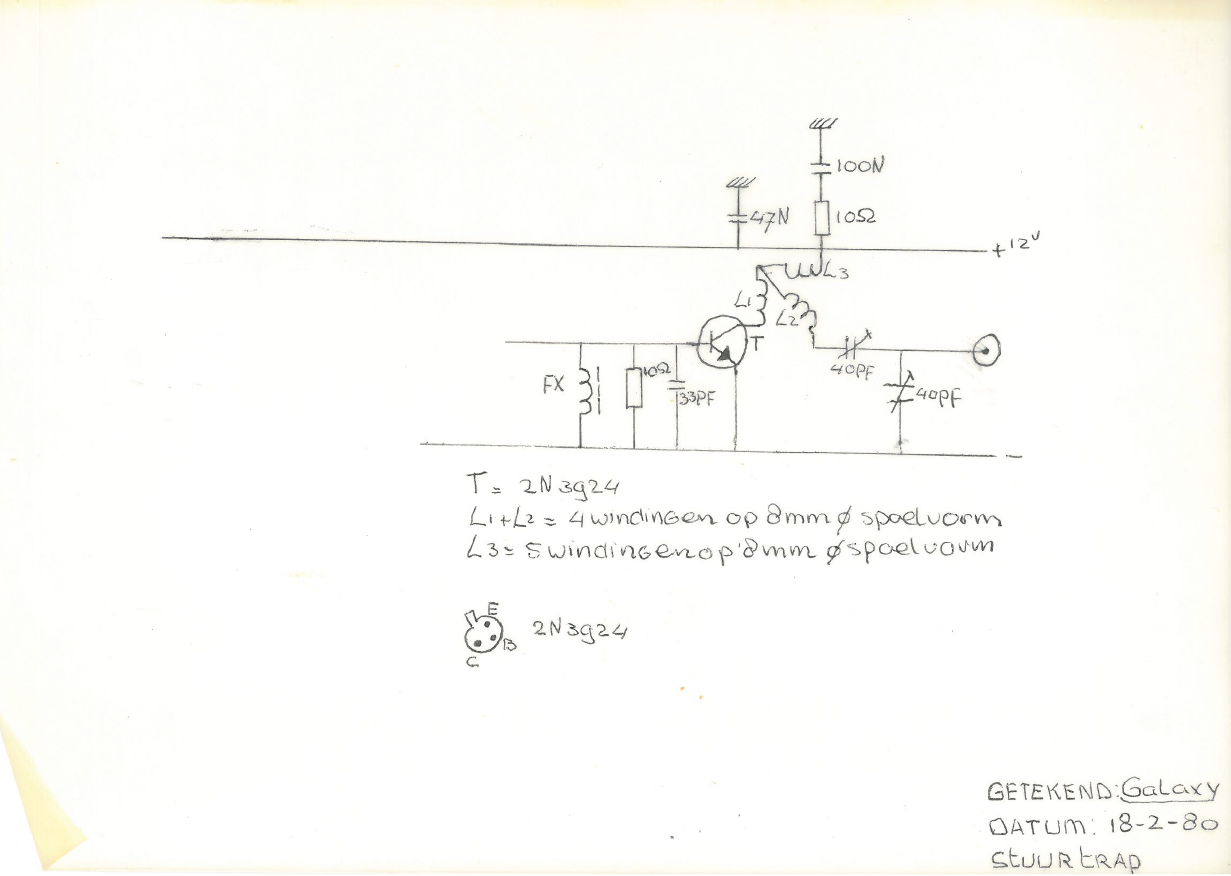 100N
47N
10Ω
+12V
L3
L1
L2
T
40PF
FX
10Ω
33PF
40PF
–
T = 2N3924
L1+L2 = 4 windingen op 8mm ϕ spoelvorm
L3 = 5 windingen op 8mm ϕ spoelvorm
E
2N3924
B
C
GETEKEND: Galaxy
DATUM: 18-2-80
STUURTRAP